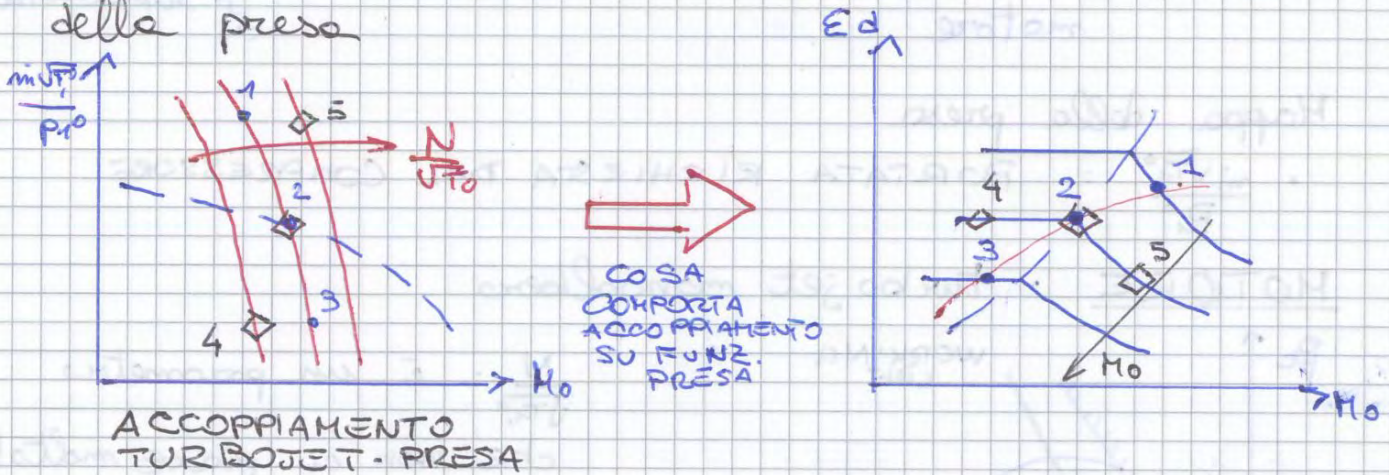 della presa
ṁ√T₁°
p₁°
1
5
N
√T₀
2
3
4
M₀
ACCOPPIAMENTO
TURBOJET - PRESA
COSA
COMPORTA
ACCOPPIAMENTO
SU FUNZ.
PRESA
εd
4
2
1
3
5
M₀
M₀